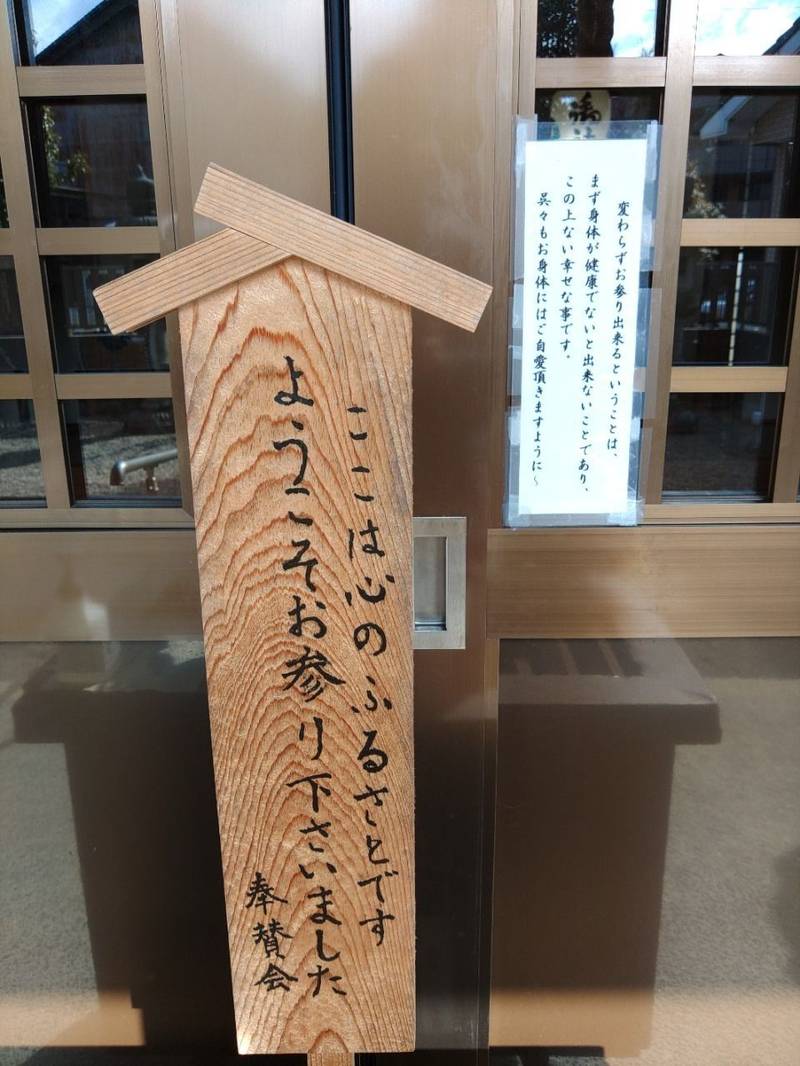 変わらずお参り出来るということは、
まず身体が健康でないと出来ないことであり、
この上ない幸せな事です。
呉々もお身体にはご自愛頂きますように〜
ここは心のふるさとです
ようこそお参り下さいました
奉賛会